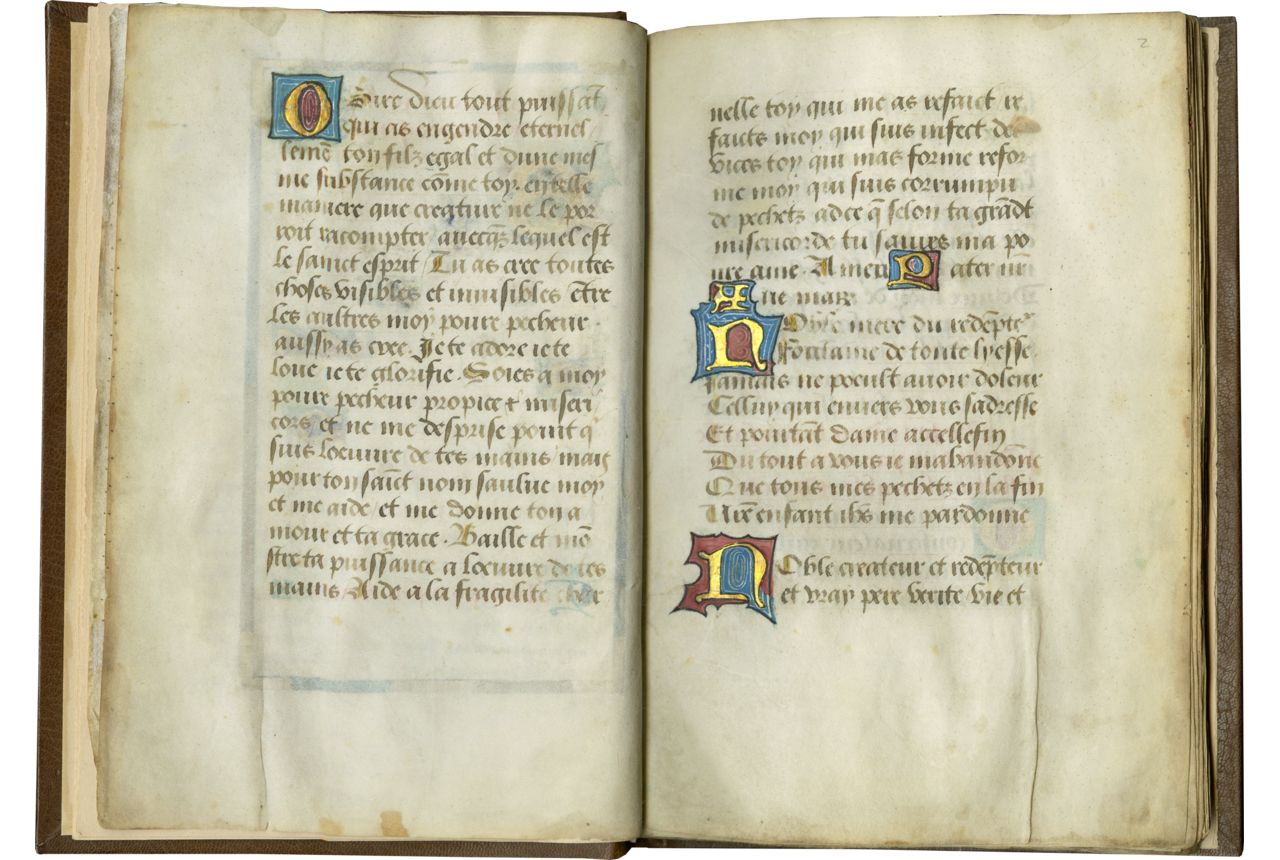 O Sire dieu tout puissāt
qui as engendre eternel/
lemē̄t ton filz egal et dune mes
me substance cōme toy. en telle
maniere que creature ne le por
roit racompter/ auecqz lequel est
le sainct esprit/ Tu as cree toutes
choses visibles et inuisibles ētre
les aultres moy poure pecheur
aussy as cree. Je te adore ie te
loue ie te glorifie. Soies a moy
poure pecheur propice & miseri
cors/ et ne me desprise point q̄
suis loeuure de tes mains/ mais
pour ton saīct nom saulue moy
et me aide/ et me donne ton a
mour et ta grace. Baille et mō
stre ta puissance a loeuure de tes
mains/ Aide a la fragilite char
2
nelle toy qui me as refaict re
faicts moy qui suis infect de
vices toy qui mas forme refor
me moy qui suis corrumpu
de pechetz adce q̄ selon ta grādt
misericorde tu saulues ma po
ure ame. Amen. Pater nr̄
Aue maz.
Noble mere du redēpteʳ
Fontaine de toute lyesse.
Jamais ne poeult auoir doleur
Celluy qui enuers vous sadresse
Et pourtāt dame accellefin
Du tout a vous ie mabandōne
Que tous mes pechetz en la fin
Vr̄e enfant ihs me pardonne
Noble createur et redēpteur
et vray pere verite vie et